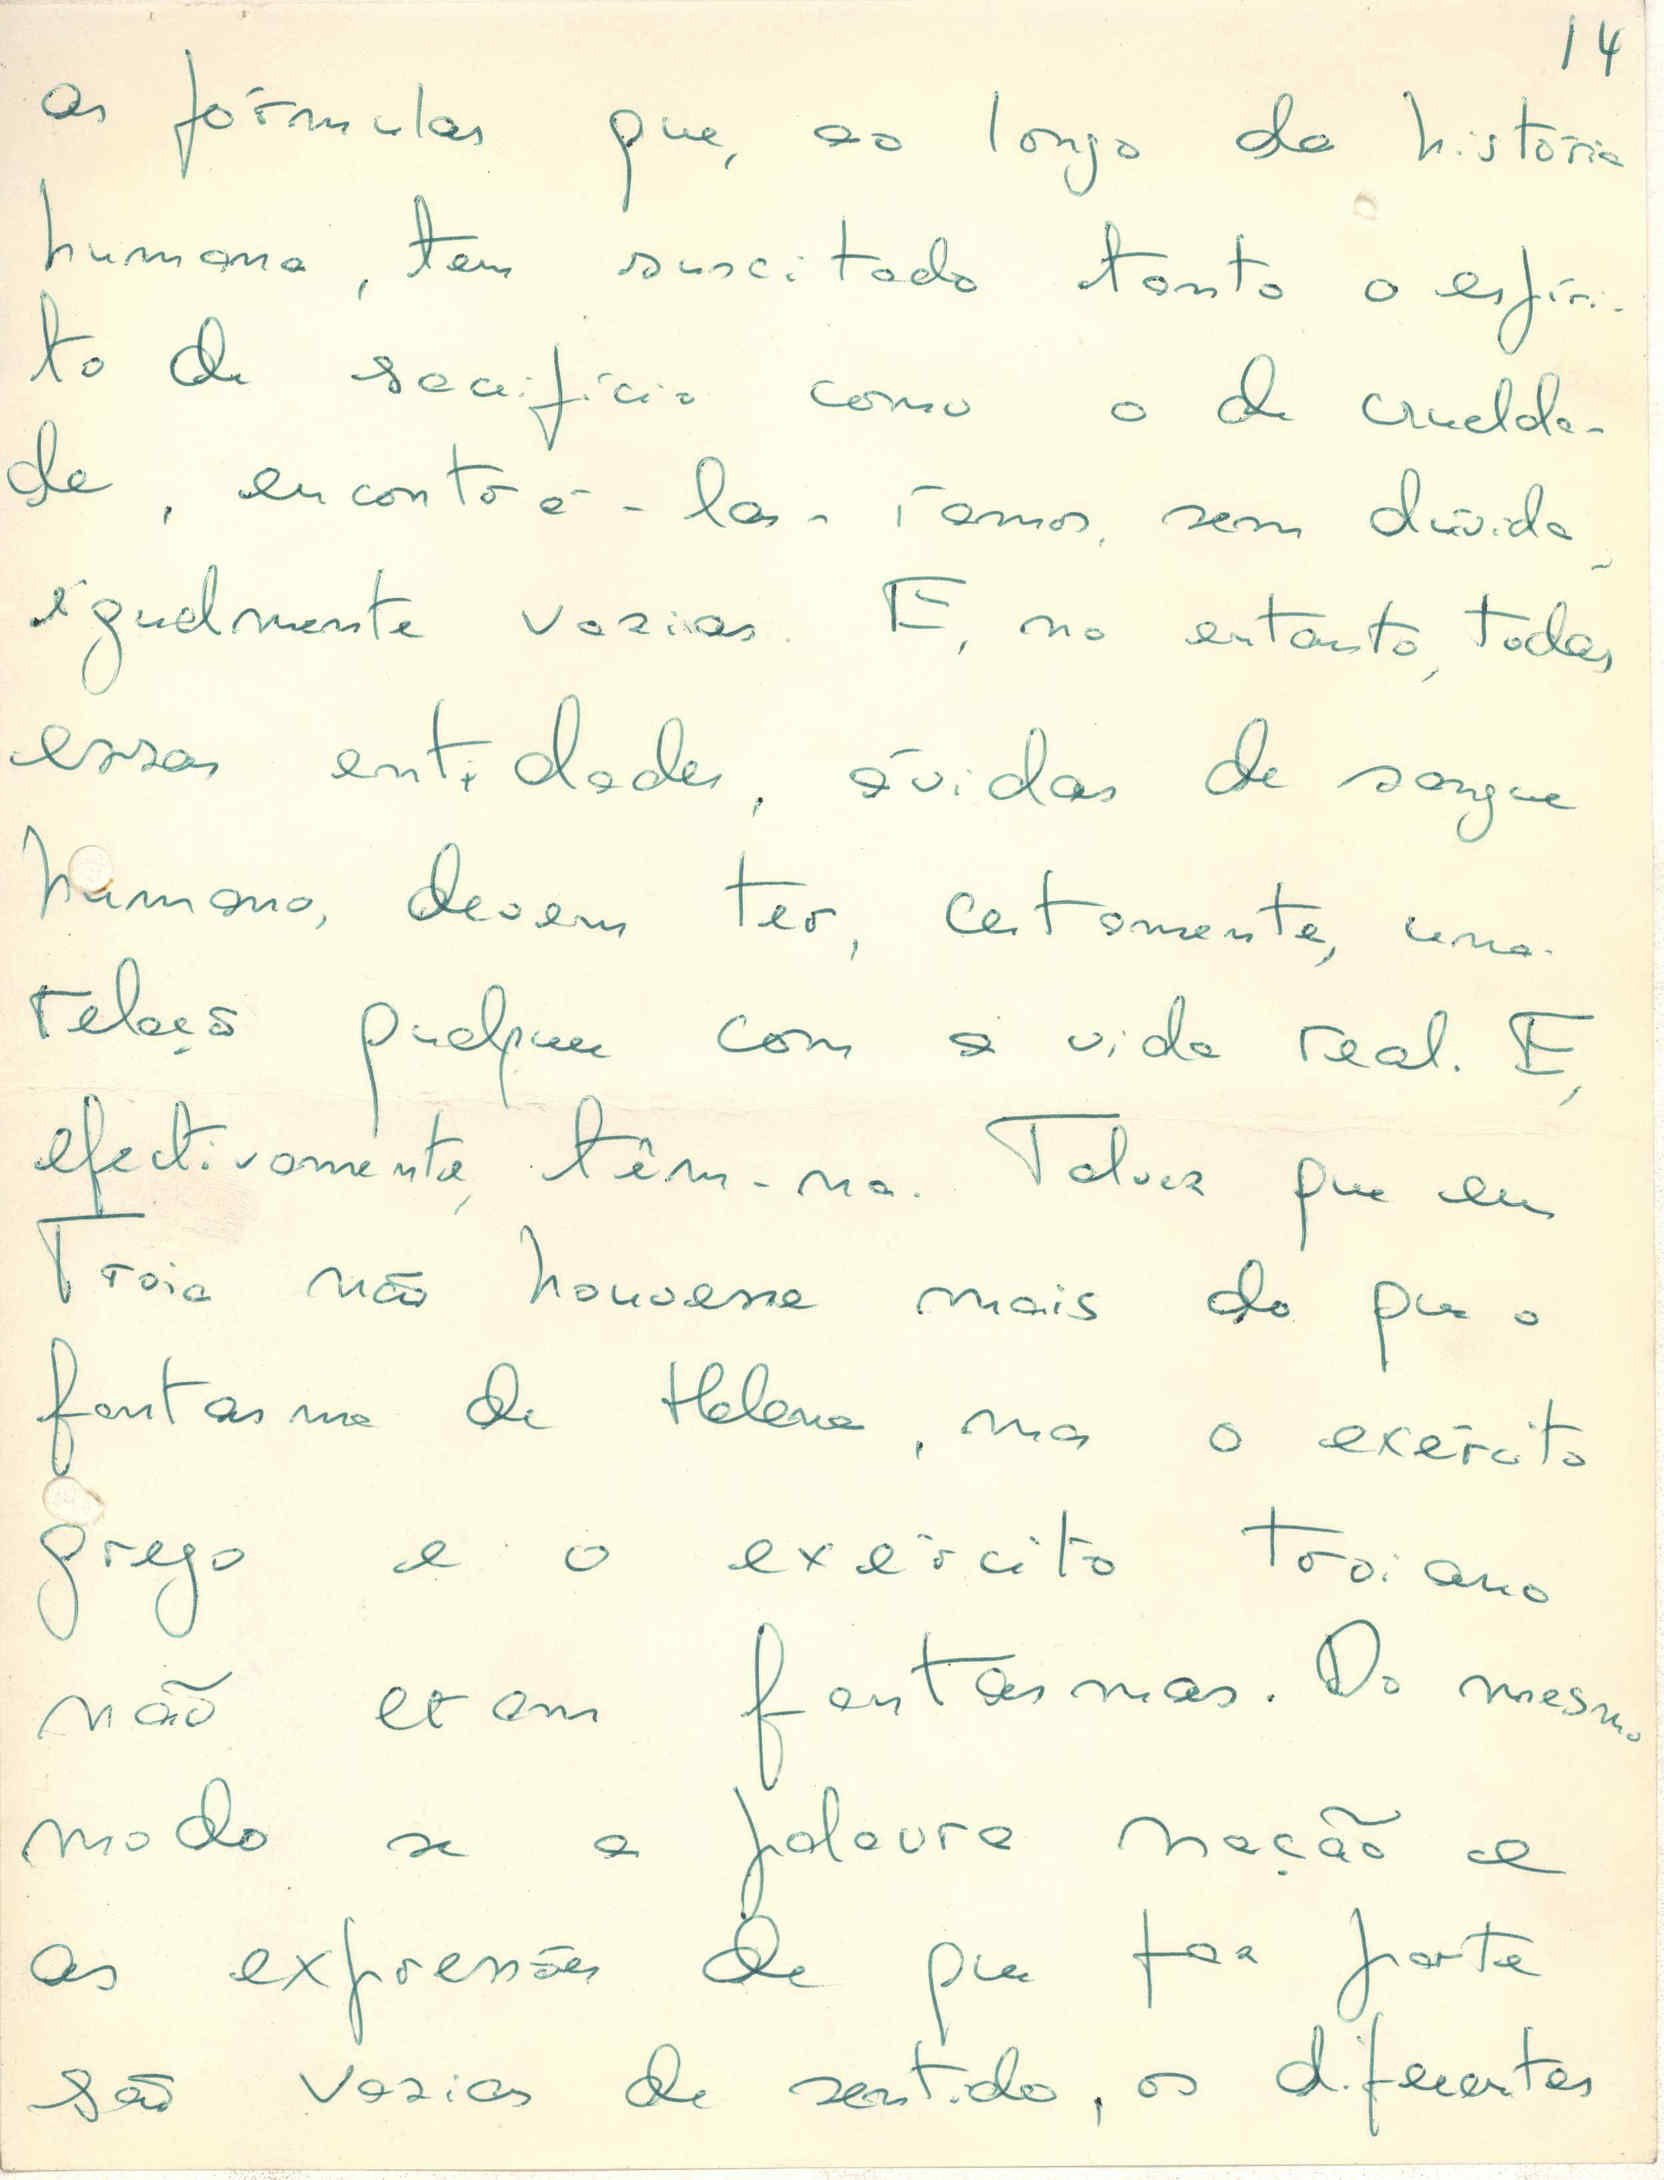 14
as fórmulas que, ao longo da história
humana, tem suscitado tanto o espíri-
to de sacrifício como o de crueldа-
de, encontrá-las-íamos, sem dúvida,
igualmente vazias. E, no entanto, todas
essas entidades, ávidas de sangue
humano, devem ter, certamente, uma
relação qualquer com a vida real. E,
efectivamente, têm-na. Talvez que em
Troia não houvesse mais do que o
fantasma de Helena, mas o exército
grego e o exército troiano
não eram fantasmas. Do mesmo
modo se a palavra nação e
as expressões de que faz parte
são vazias de sentido, os diferentes